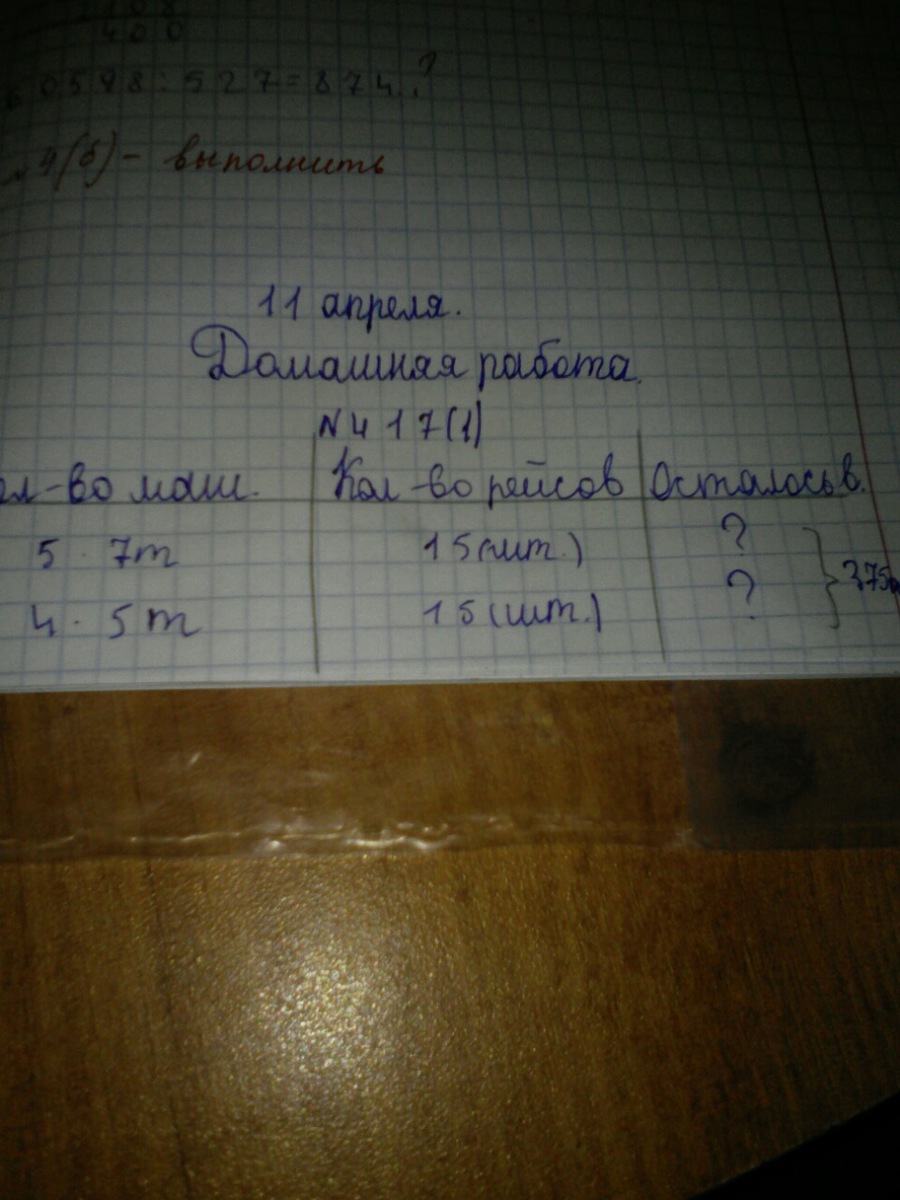 400
60598:527=874.?
4(б) - выполнить
11 апреля.
Домашняя работа.
N417(1)
ол-во маш. Кол-во рейсов Осталось в.
5 · 7т 15(шт.) ?
375
4 · 5т 15(шт.) ?